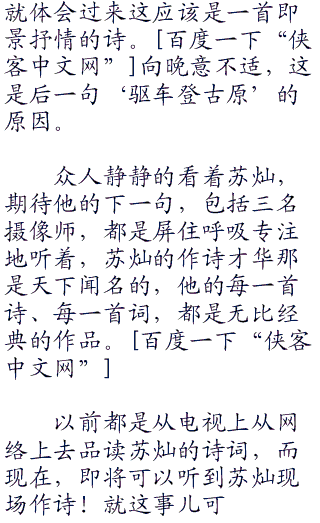 就体会过来这应该是一首即
景抒情的诗。[百度一下“侠
客中文网”]向晚意不适，这
是后一句‘驱车登古原’的
原因。
众人静静的看着苏灿，
期待他的下一句，包括三名
摄像师，都是屏住呼吸专注
地听着，苏灿的作诗才华那
是天下闻名的，他的每一首
诗、每一首词，都是无比经
典的作品。[百度一下“侠客
中文网” ]
以前都是从电视上从网
络上去品读苏灿的诗词，而
现在，即将可以听到苏灿现
场作诗！就这事儿可